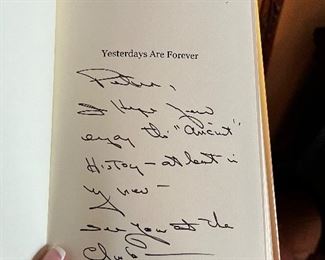 Yesterdays Are Forever
I Hope you
enjoy the "Ancient"
History - at least in
my view -
See you at the
Club